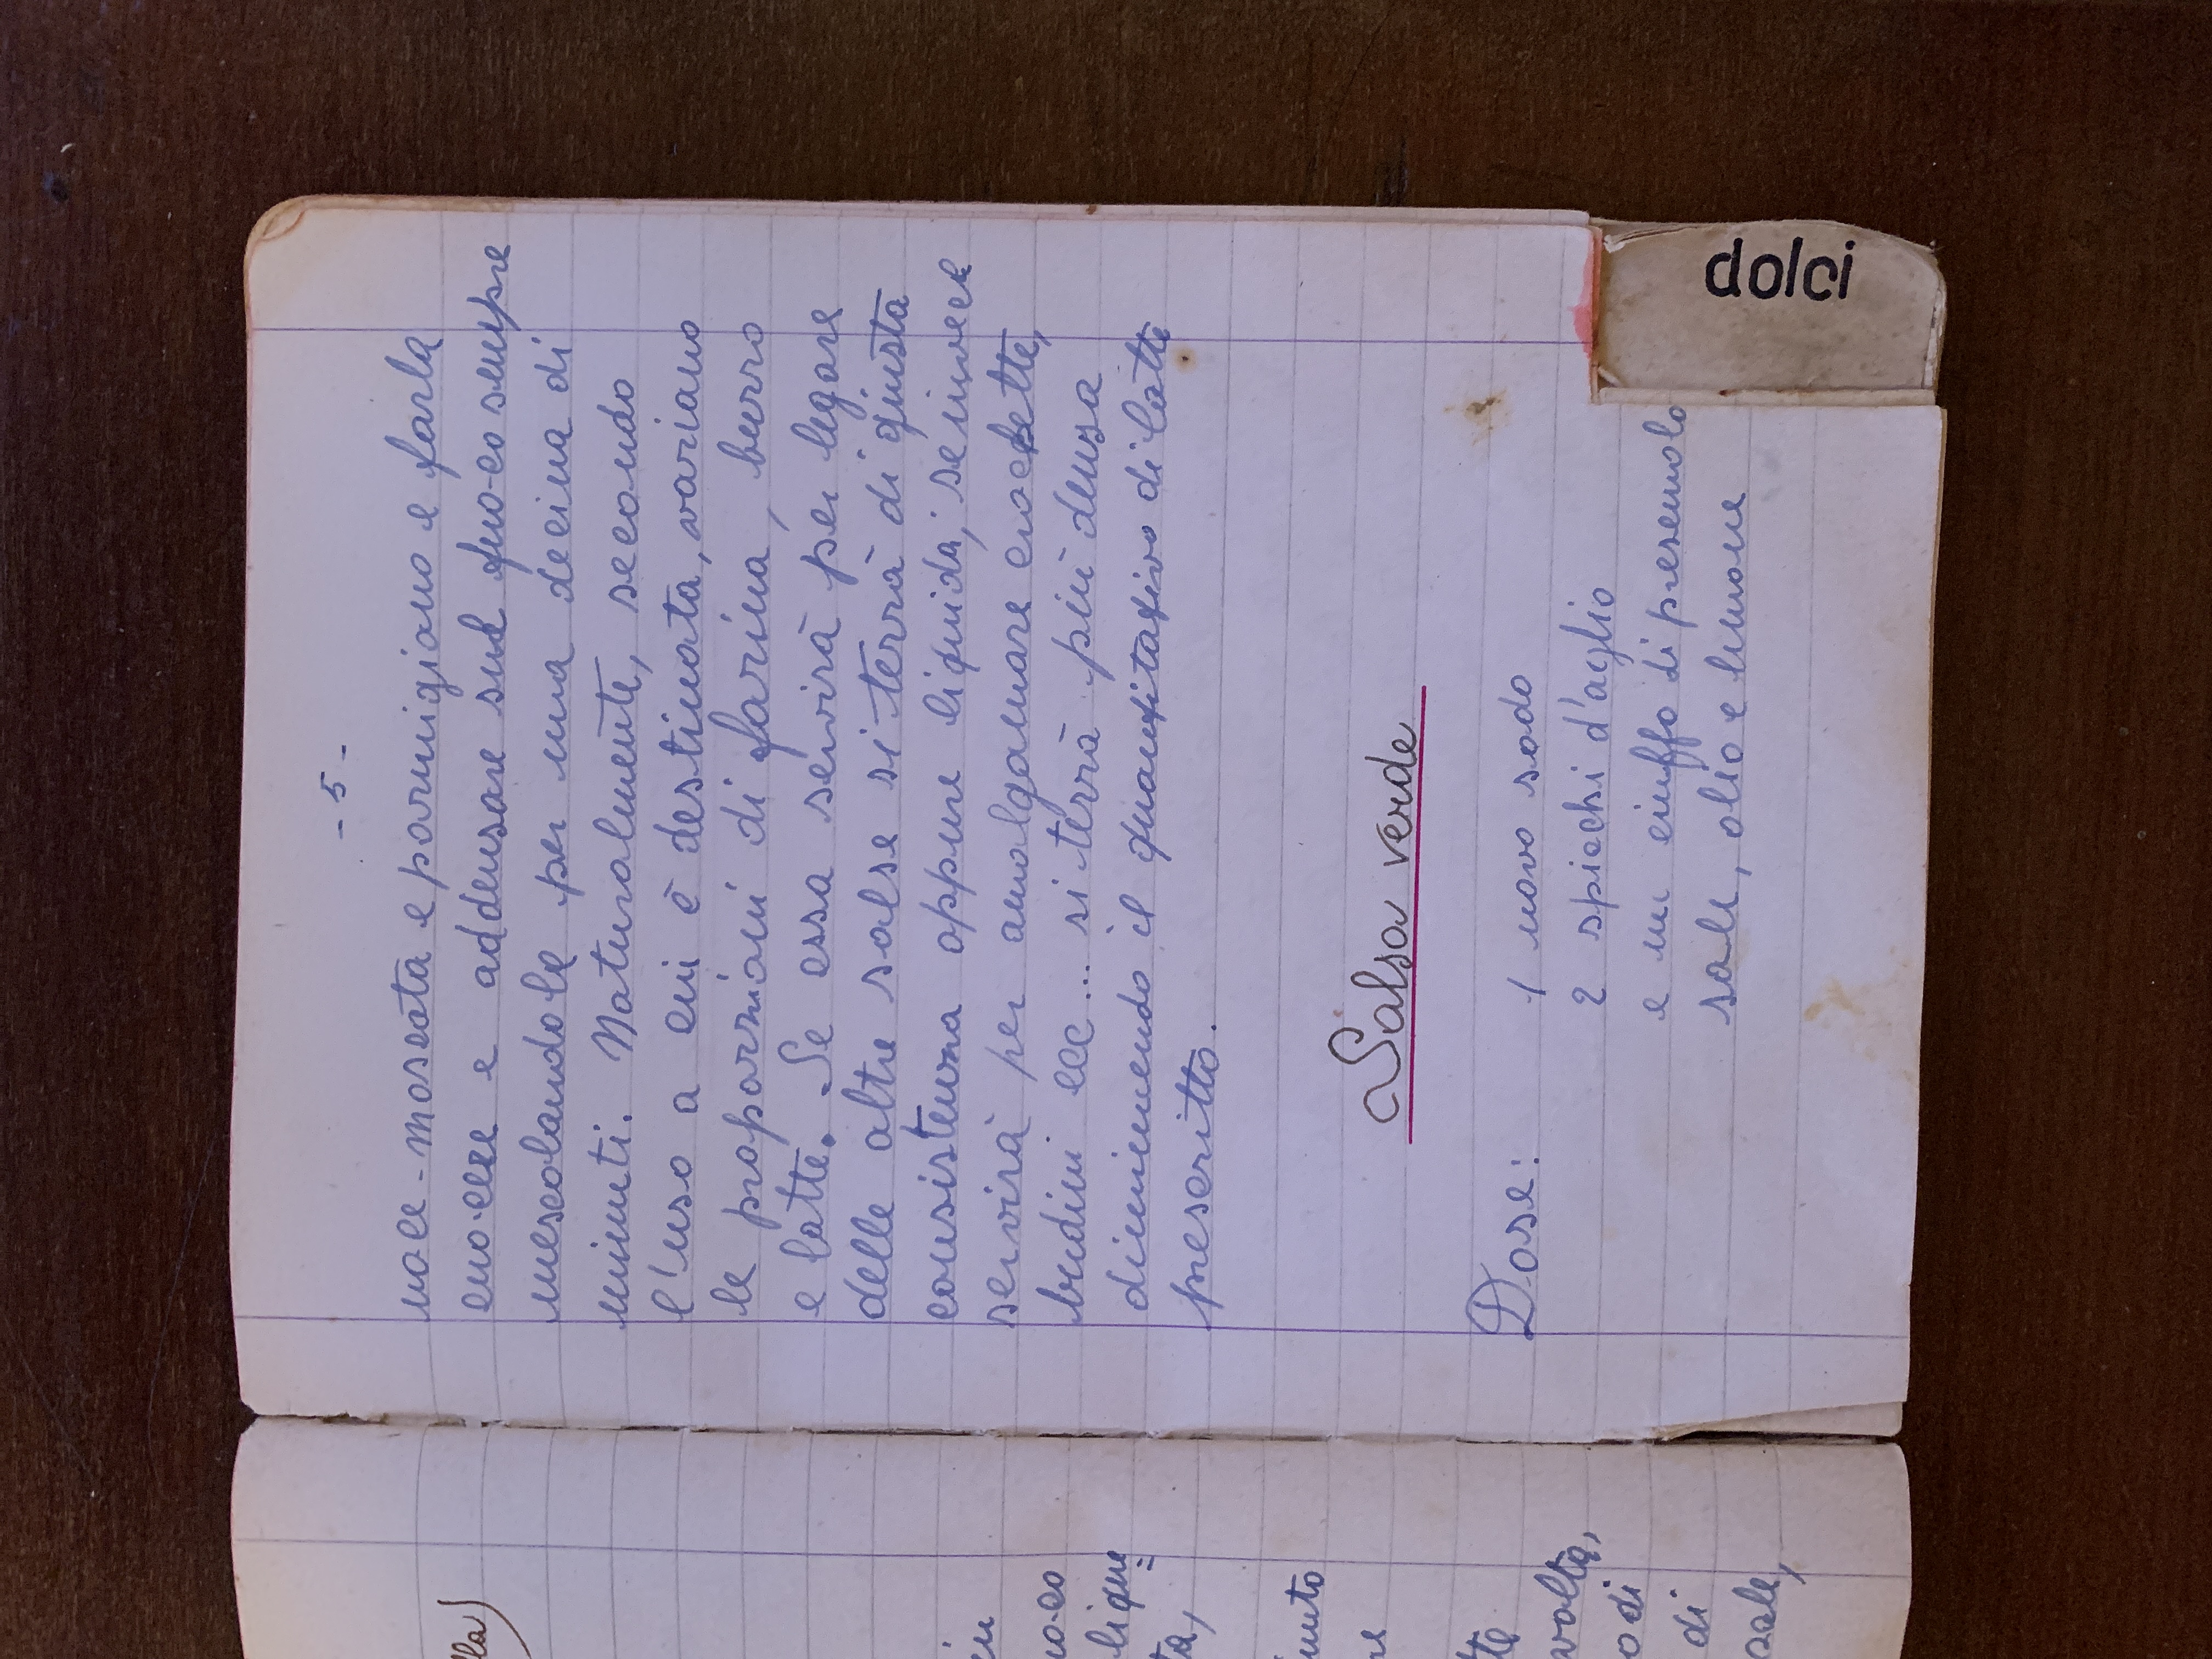 lla)
in
uo-co
lique
ta,
nuto
re
tte
volta,
o di
di
sale,
- 5 -
noce-moscata e parmigiano e farla
cuo-cere e addensare sul fuo-co sempre
mescolandola per una decina di
minuti. Naturalmente, secondo
l'uso a cui è destinata, variano
le proporzioni di farina, burro
e latte. Se essa servirà per legare
delle altre salse si terrà di giusta
consistenza oppure liquida; se invece
servirà per amalgamare crocchette,
budini ecc... si terrà più densa
diminuendo il quantitativo di latte
prescritto.
Salsa verde
Dose: 1 uovo sodo
2 spicchi d'aglio
e un ciuffo di presemolo
sale, olio e limone
dolci